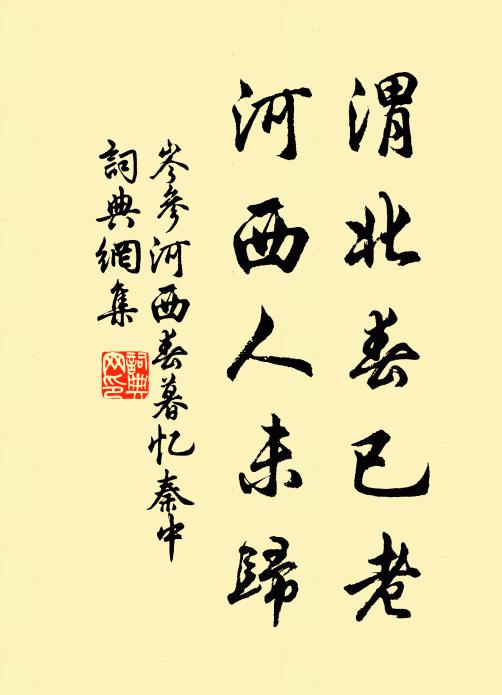 渭北春已老
河西人未歸
岑參河西春暮忆秦中
詞典網集
詞典网印